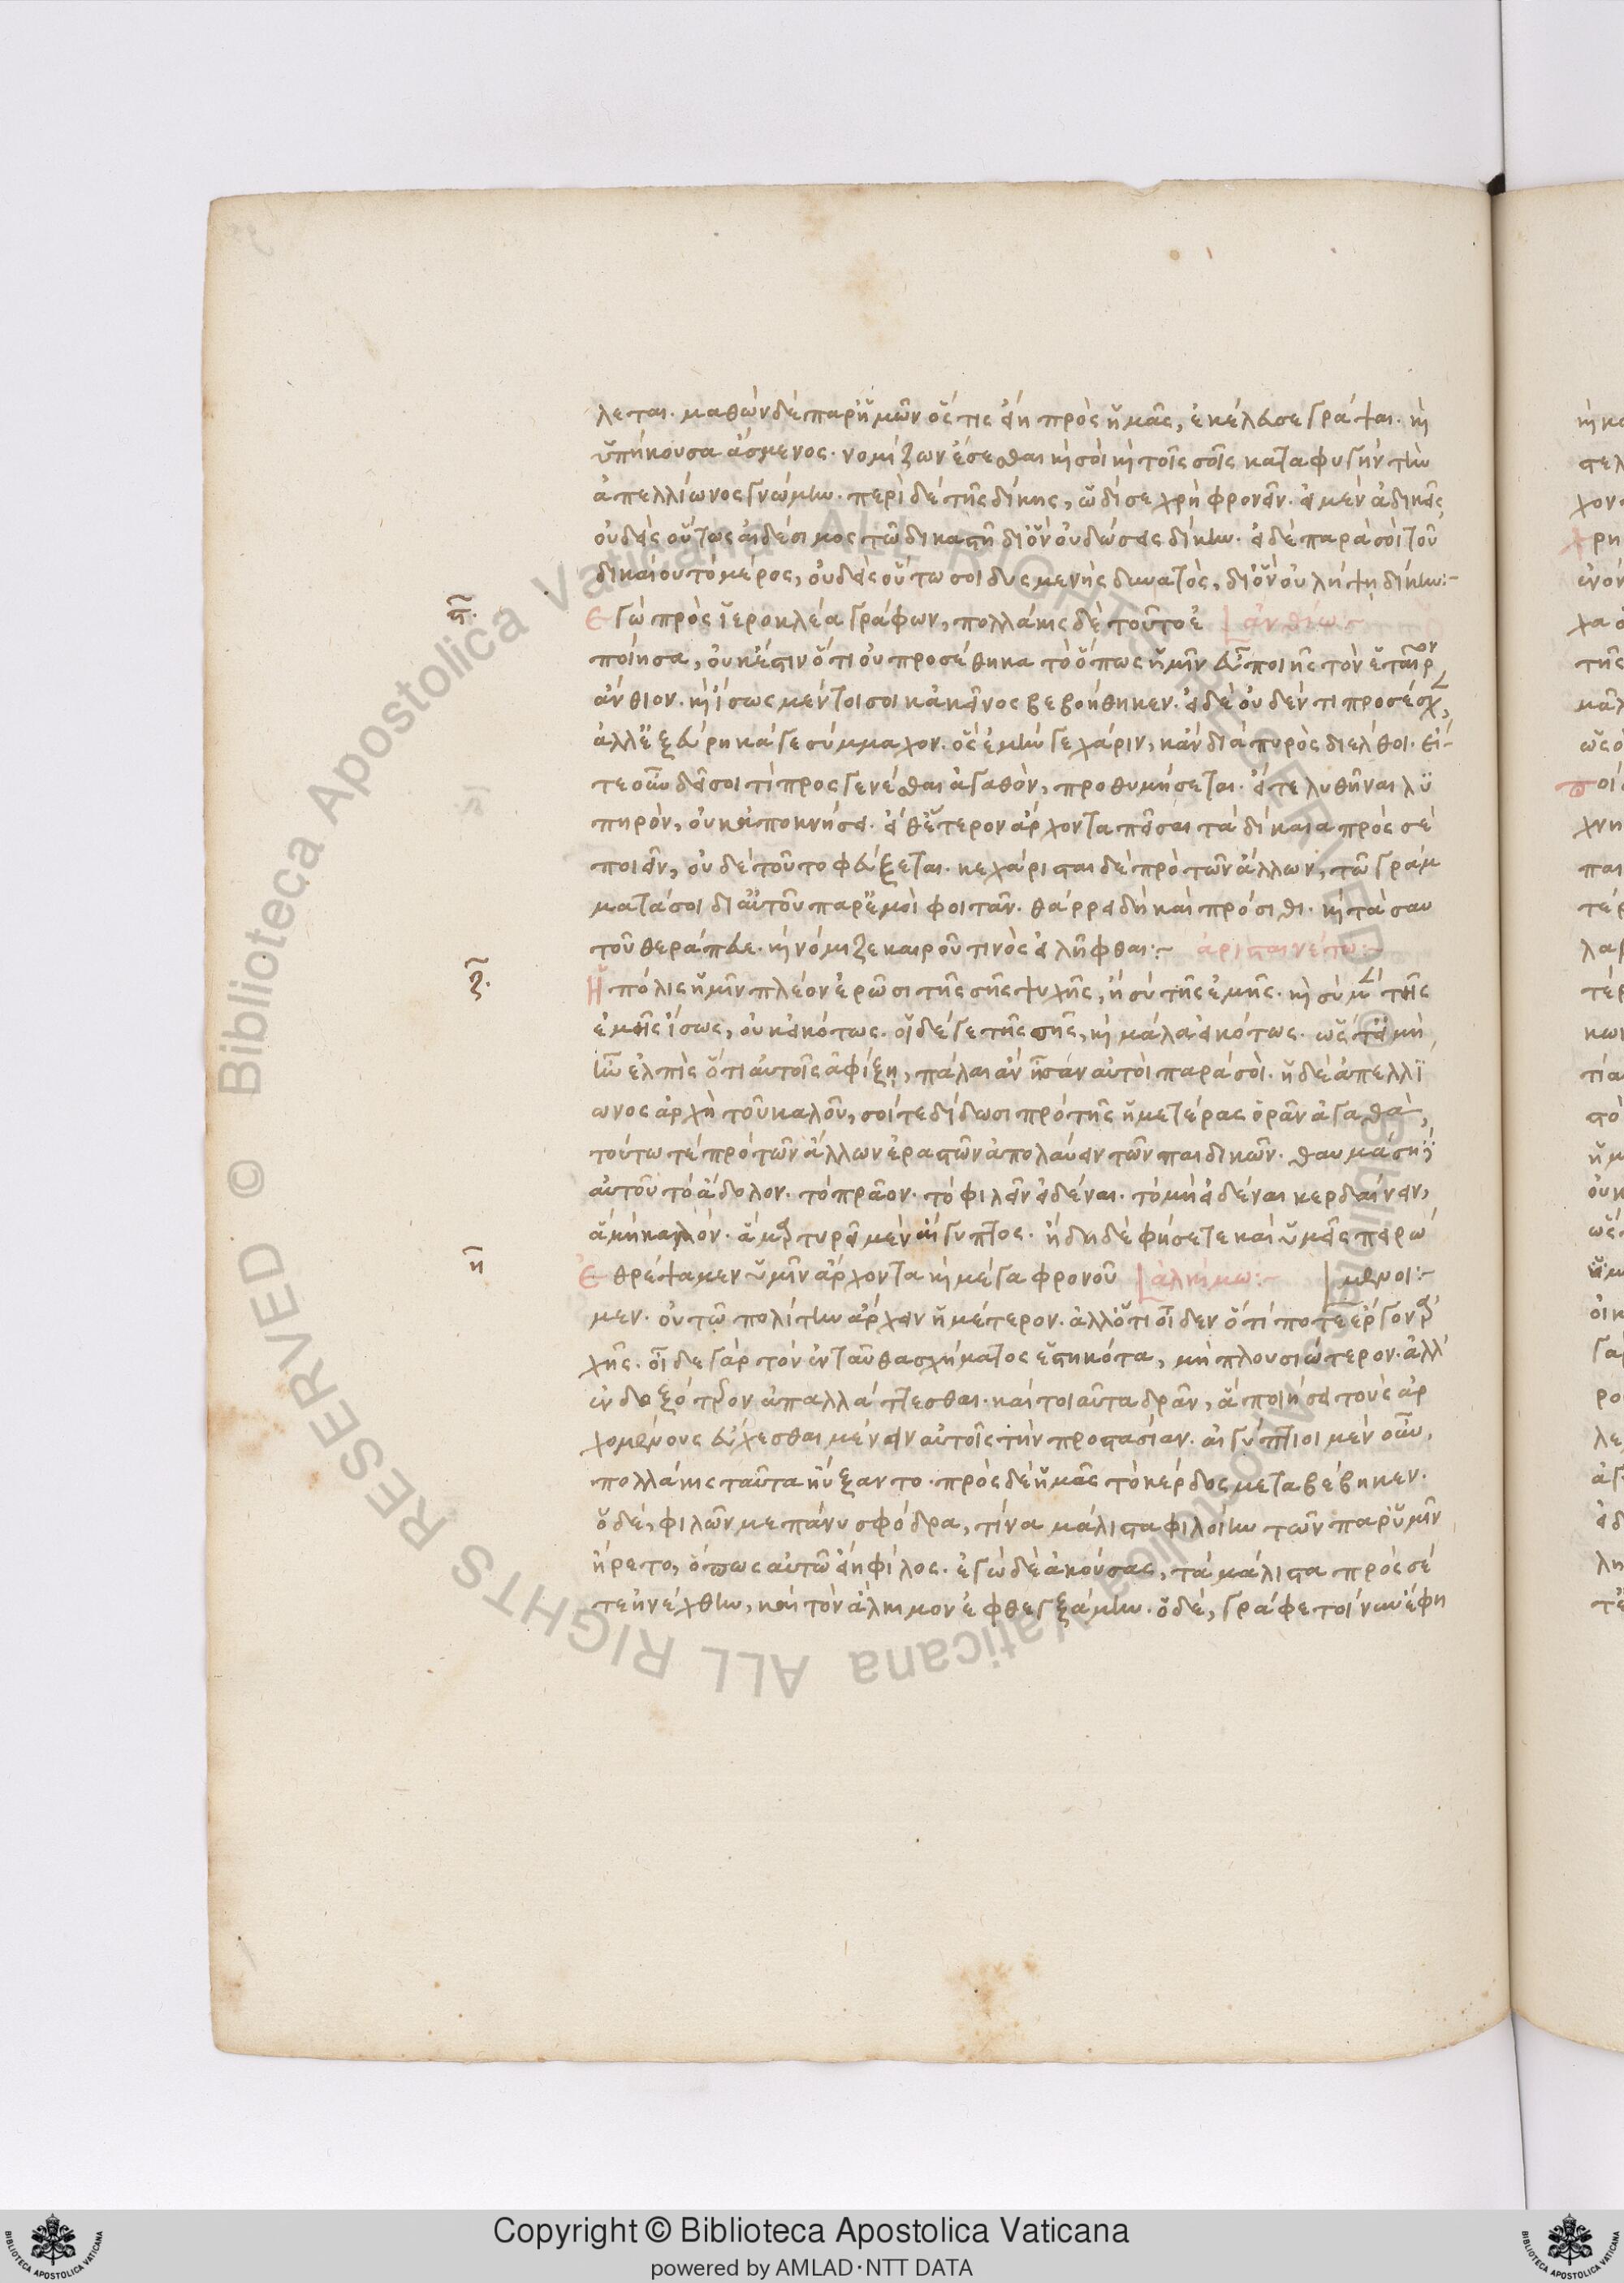 λεται. μαθὼν δὲ παρ' ἡμῶν ὅστις εἴη πρὸς ἡμᾶς, ἐκέλευσε γράψαι. καὶ
ὑπήκουσα ἄσμενος. νομίζων ἔσεσθαι καὶ σοὶ καὶ τοῖς σοῖς καταφυγὴν τὴν
ἀπελλίωνος γνώμην. περὶ δὲ τῆς δίκης, ὡδί σε χρὴ φρονεῖν. εἰ μὲν ἀδικεῖς,
οὐδεὶς οὕτως αἰδέσιμος τῷ δικαστῇ δι' ὃν οὐ δώσεις δίκην. εἰ δὲ παρὰ σοὶ τοῦ
δικαίου τὸ μέρος, οὐδεὶς οὕτω σοι δυσμενὴς δυνατὸς, δι' ὃν οὐ λήψῃ δίκην:-
ϛ.
Ἐγὼ πρὸς ἱεροκλέα γράφων, πολλάκις δὲ τοῦτο ἐ ἀνθίῳ:-
ποίησα, οὐκ ἔστιν ὅτι οὐ προσέθηκα τὸ ὅπως ἡμῖν εὖ ποιῇς τὸν ἑταῖρον
ἄνθιον. καὶ ἴσως μέν τοί σοι κἀκεῖνος βεβοήθηκεν. εἰ δὲ οὐδέν τι προσέσχεν,
ἀλλ' ἐξεύρηκά γε σύμμαχον. ὃς ἐμὴν γε χάριν, κἂν διὰ πυρὸς διέλθοι. εἴ-
τε οὖν δεῖ σοί τι προσγενέσθαι ἀγαθὸν, προθυμήσεται. εἴτε λυθῆναι λυ
πηρὸν, οὐκ ἀποκνήσει. εἴθ' ἕτερον ἄρχοντα πεῖσαι τὰ δίκαια πρὸς σὲ
ποιεῖν, οὐδὲ τοῦτο φεύξεται. κεχάρισται δὲ πρὸ τῶν ἄλλων, τῷ γράμ
ματά σοι δι' αὐτοῦ παρ' ἐμοὶ φοιτᾶν. θάρρει δὴ καὶ πρόσιθι. καὶ τὰ σαυ
τοῦ θεράπευε. καὶ νόμιζε καιροῦ τινὸς εἰλῆφθαι:- ἀρισταινέτῳ:-
ζ.
Ἡ πόλις ἡμῖν πλέον ἐρῶσι τῆς σῆς ψυχῆς, ἢ σὺ τῆς ἐμῆς. καὶ σὺ μὲν τῆς
ἐμῆς ἴσως, οὐκ εἰκότως. οἱ δέ γε τῆς σῆς, καὶ μάλα εἰκότως. ὥστ' εἰ μὴ
ἦν ἐλπὶς ὅτι αὐτοῖς ἀφίξῃ, πάλαι ἂν ἦσαν αὐτοὶ παρὰ σοί. ἡ δὲ ἀπελλί
ωνος ἀρχὴ τοῦ καλοῦ, σοί τε δίδωσι πρὸ τῆς ἡμετέρας ὁρᾶν ἀγαθὰ,
τούτῳ τὲ πρὸ τῶν ἄλλων ἐραστῶν ἀπολαύειν τῶν παιδικῶν. θαυμάσῃ
αὐτοῦ τὸ ἄδολον. τὸ πρᾶον. τὸ φιλεῖν εἰδέναι. τὸ μὴ εἰδέναι κερδαίνειν,
ἃ μὴ καλόν. ἃ μαρτυρεῖ μὲν αἴγυπτος. ἤδη δὲ φήσετε καὶ ὑμεῖς πειρώ
η
Ἐθρέψαμεν ὑμῖν ἄρχοντα καὶ μέγα φρονοῦ ἀλκίμῳ:- μενοι:-
μεν. οὐ τῷ πολίτην ἄρχειν ἡμέτερον. ἀλλ' ὅτι οἶδεν ὅτί ποτε ἔργον ἀρ
χῆς. οἶδε γὰρ τὸν ἐνταῦθα σχήματος ἑστηκότα, μὴ πλουσιώτερον. ἀλλ'
ἐνδοξότερον ἀπαλλάττεσθαι. καὶ τοιαῦτα δρᾶν, ἃ ποιήσει τοὺς ἀρ
χομένους εὔχεσθαι μένειν αὐτοῖς τὴν προστασίαν. αἰγύπτιοι μὲν οὖν,
πολλάκις ταῦτα ηὔξαντο. πρὸς δὲ ἡμᾶς τὸ κέρδος μεταβέβηκεν.
ὁ δὲ, φιλῶν με πάνυ σφόδρα, τίνα μάλιστα φιλοίην τῶν παρ' ὑμῖν
ἤρετο, ὅπως αὐτῷ εἴη φίλος. ἐγὼ δὲ ἀκούσας, τὰ μάλιστα πρὸς σέ
τε ἠνέχθην, καὶ τὸν ἄλκιμον ἐφθεγξάμην. ὁ δὲ, γράφε τοίνυν ἔφη
Copyright © Biblioteca Apostolica Vaticana
powered by AMLAD·NTT DATA